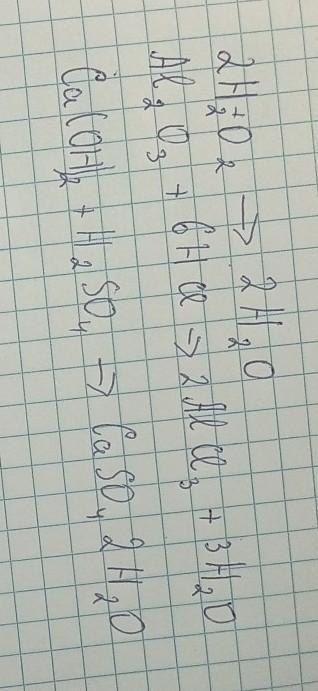 2H₂+O₂ → 2H₂O
Al₂O₃ + 6HCl → 2AlCl₃ + 3H₂O
Ca(OH)₂ + H₂SO₄ → CaSO₄ 2H₂O